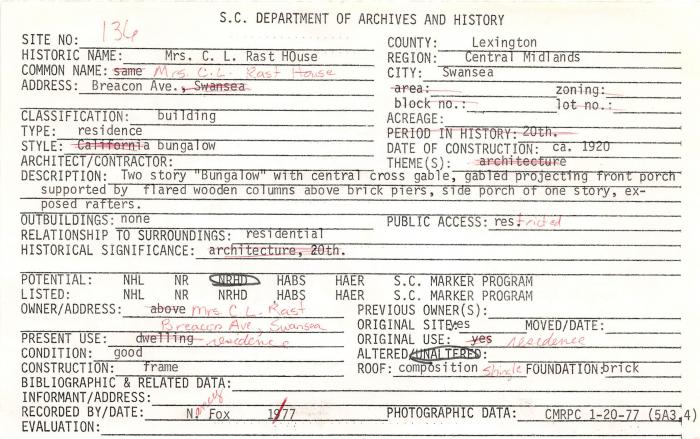 S.C. DEPARTMENT OF ARCHIVES AND HISTORY
SITE NO: 136
HISTORIC NAME: Mrs. C. L. Rast HOuse
COMMON NAME: same Mrs. C.L. Rast House
ADDRESS: Breacon Ave., Swansea
COUNTY: Lexington
REGION: Central Midlands
CITY: Swansea
area: zoning:
block no.: lot no.:
CLASSIFICATION: building
TYPE: residence
STYLE: California bungalow
ARCHITECT/CONTRACTOR:
ACREAGE:
PERIOD IN HISTORY: 20th.
DATE OF CONSTRUCTION: ca. 1920
THEME(S): architecture
DESCRIPTION: Two story "Bungalow" with central cross gable, gabled projecting front porch
supported by flared wooden columns above brick piers, side porch of one story, ex-
posed rafters.
OUTBUILDINGS: none PUBLIC ACCESS: restricted
RELATIONSHIP TO SURROUNDINGS: residential
HISTORICAL SIGNIFICANCE: architecture, 20th.
POTENTIAL: NHL NR NRHD HABS HAER S.C. MARKER PROGRAM
LISTED: NHL NR NRHD HABS HAER S.C. MARKER PROGRAM
OWNER/ADDRESS: above Mrs. C L. Rast
Breacon Ave, Swansea
PRESENT USE: dwelling residence
CONDITION: good
CONSTRUCTION: frame
PREVIOUS OWNER(S):
ORIGINAL SITE: yes MOVED/DATE:
ORIGINAL USE: yes residence
ALTERED/UNALTERED:
ROOF: composition shingle FOUNDATION: brick
BIBLIOGRAPHIC & RELATED DATA:
INFORMANT/ADDRESS:
RECORDED BY/DATE: Nancy Fox 1/77 PHOTOGRAPHIC DATA: CMRPC 1-20-77 (5A3,4)
EVALUATION: